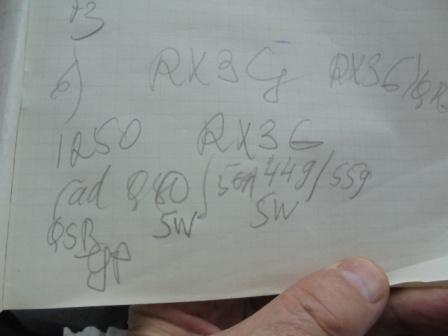 73
6) RX3G RX3G/QR
1250 RX3G
rad 080 449/559
5W 5W
QSB